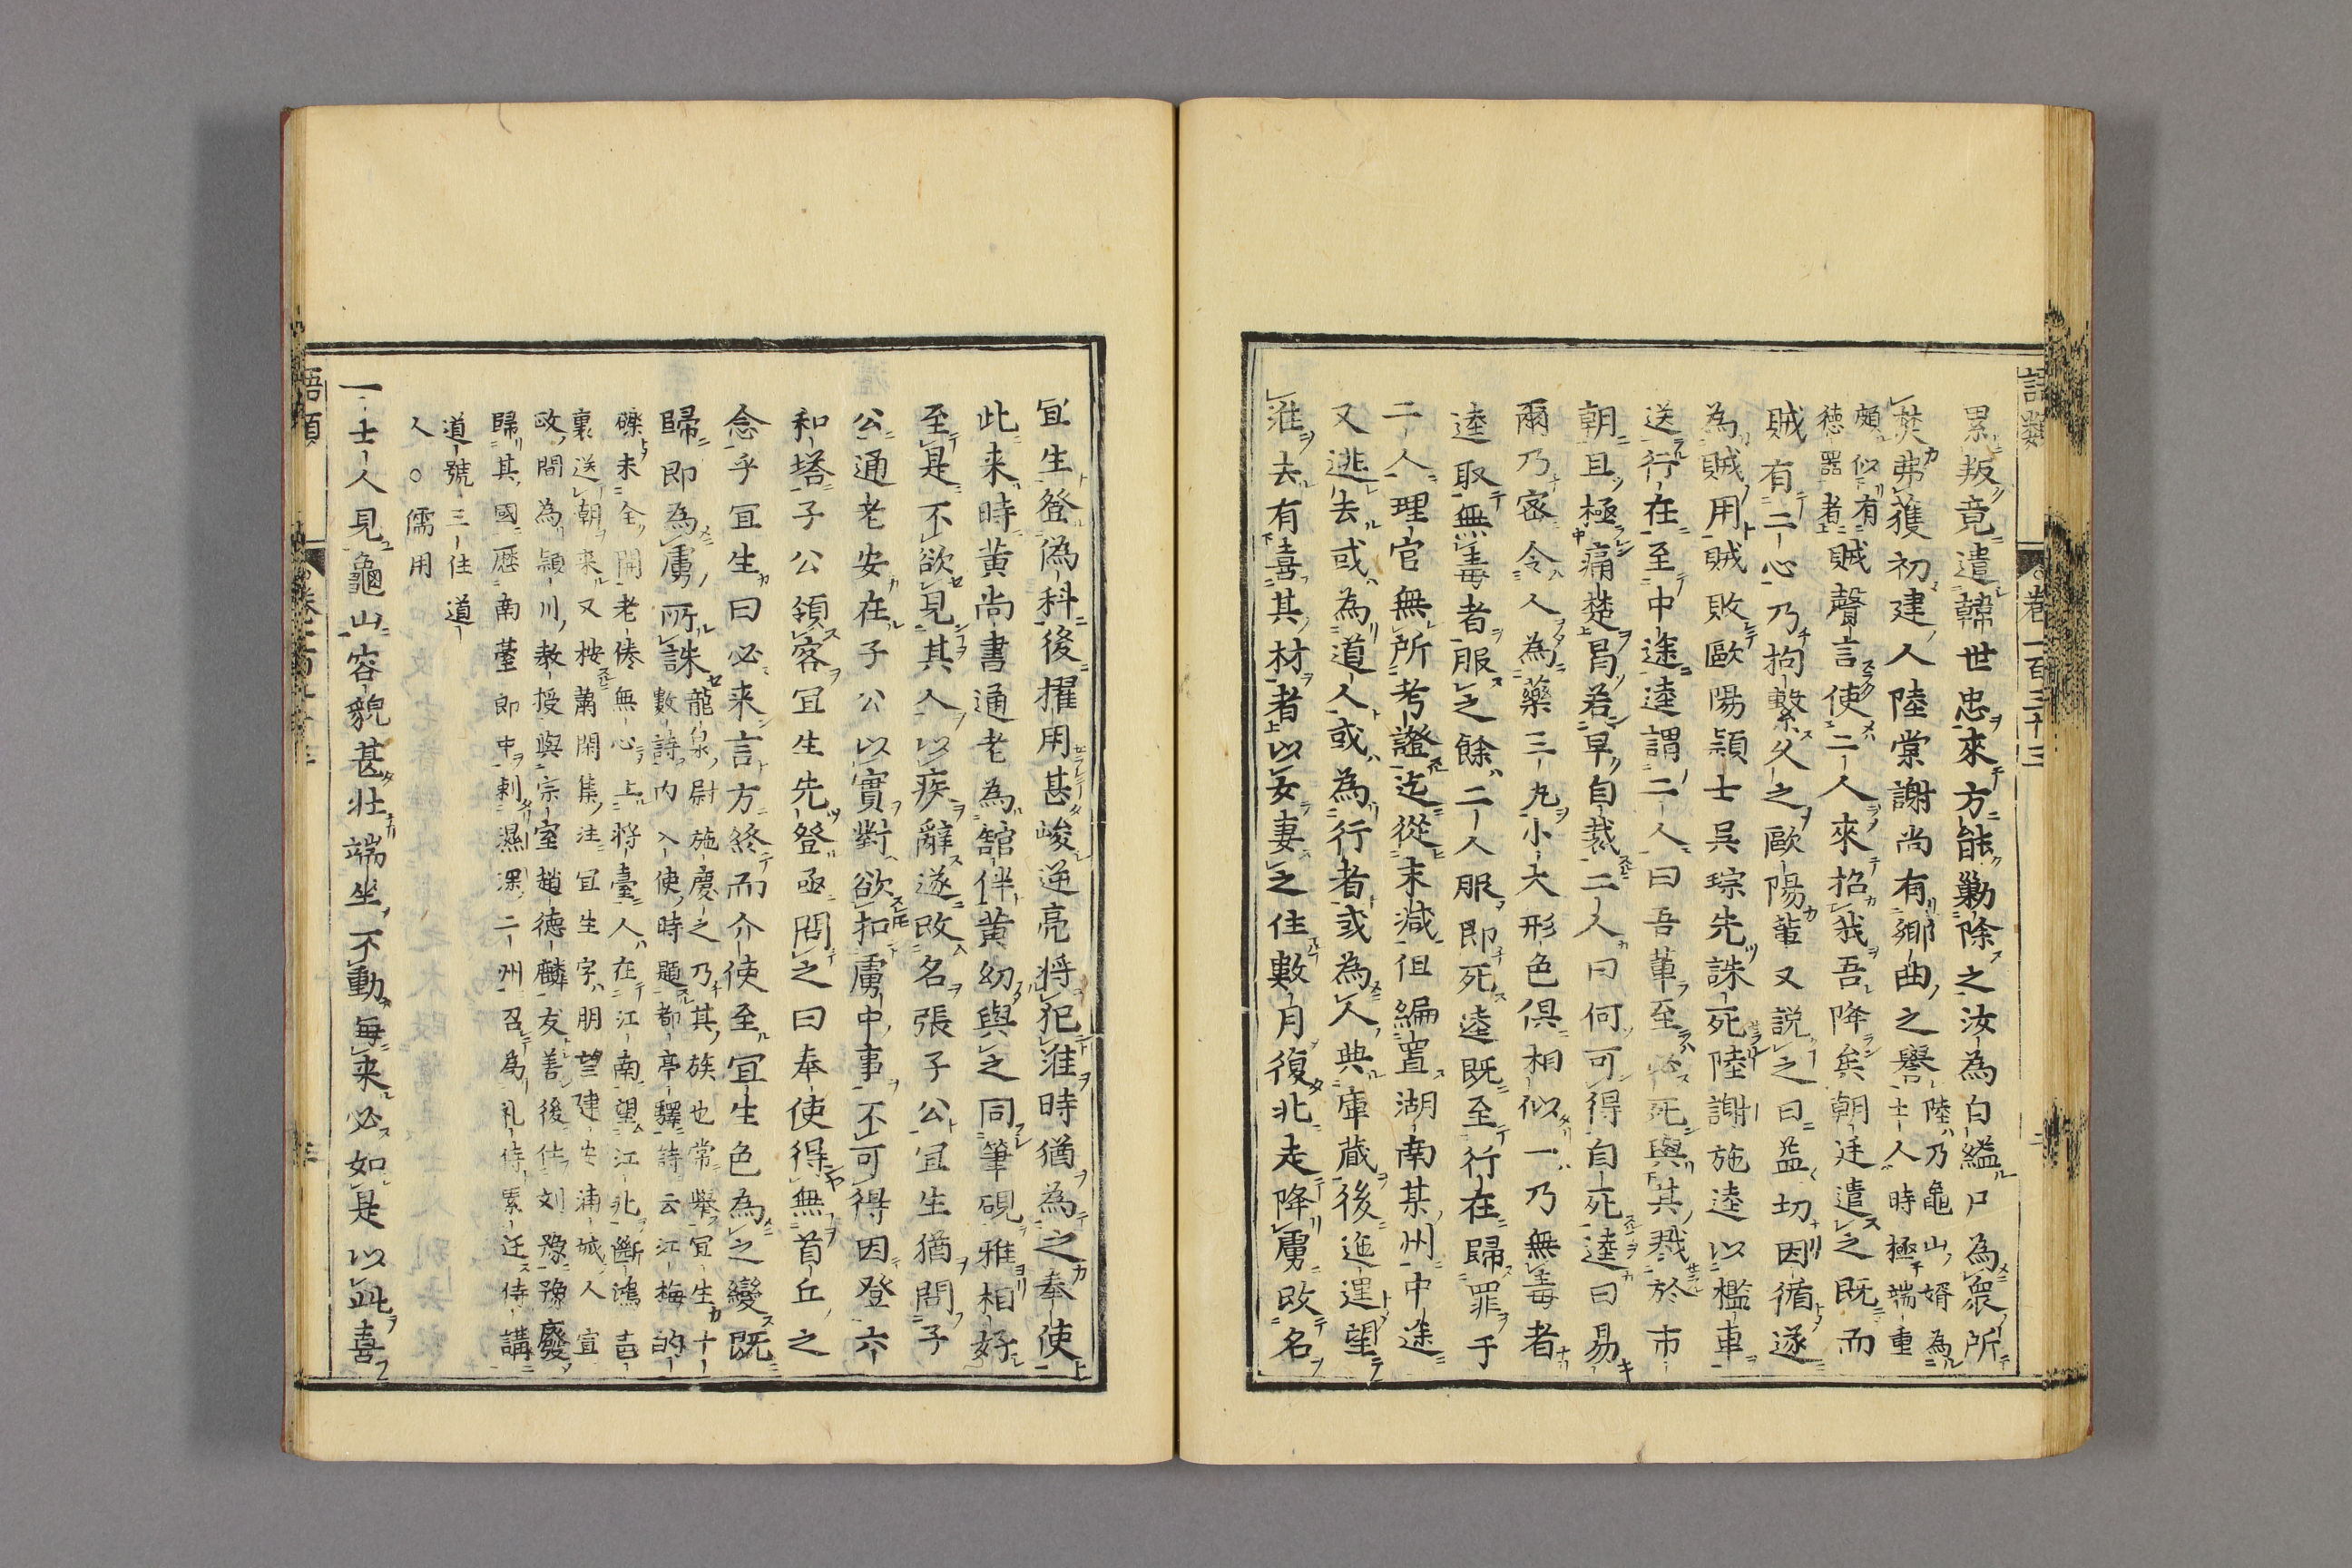 語類 卷一百三十三
累叛竟遣韓世忠來方能勦除之汝為自縊尸為衆所
焚弗獲初建人陸棠謝尚有鄉曲之譽陸乃龜山婿為士人時極端重
頗似有德器者賊聲言使二人來招我吾降矣朝廷遣之既而
賊有二心乃拘繫久之歐陽輩又說之曰益切因循遂
為賊用賊敗歐陽頴士吳琮先誅死陸謝施逵以檻車
送行在至中途逵謂二人曰吾輩至必死與其戮於市
朝且極痛楚曷若早自裁二人曰何可得自死逵曰易
爾乃密令人為藥三丸小大形色俱相似一乃無毒者
逵取無毒者服之餘二人服即死逵既至行在歸罪于
二人理官無所考證迄從末減但編置湖南某州中途
又逃去或為道人或為行者或為人典庫藏後迤邐望
淮去有喜其材者以女妻之住數月復北走降虜改名
宜生登偽科後擢用甚峻逆亮將犯淮時猶為之奉使
此来時黃尚書通老為館伴黃幼與之同筆硯雅相好
至是不欲見其人以疾辭遂改名張子公宜生猶問子
公通老安在子公以實對欲扣虜中事不可得因登六
和塔子公領客宜生先登亟問之曰奉使得無首丘之
念乎宜生曰必来言方終而介使至宜生色為之變既
歸即為虜所誅龍泉尉施慶之乃其族也常舉宜生十
數詩內入使時題都亭驛詩云江梅的
皪未全開老倦無心上將臺人在江南望江北斷鴻聲
裏送朝来又按蕭閑集注宜生字明望建安浦城人宣
政間為頴川教授與宗室趙德麟友善後仕刘豫豫廢
歸其國歷南臺郎中刺濕深二州召為礼侍累迁侍講
道號三住道
人○儒用
一士人見龜山容貌甚壯端坐不動每来必如是以此喜
語類